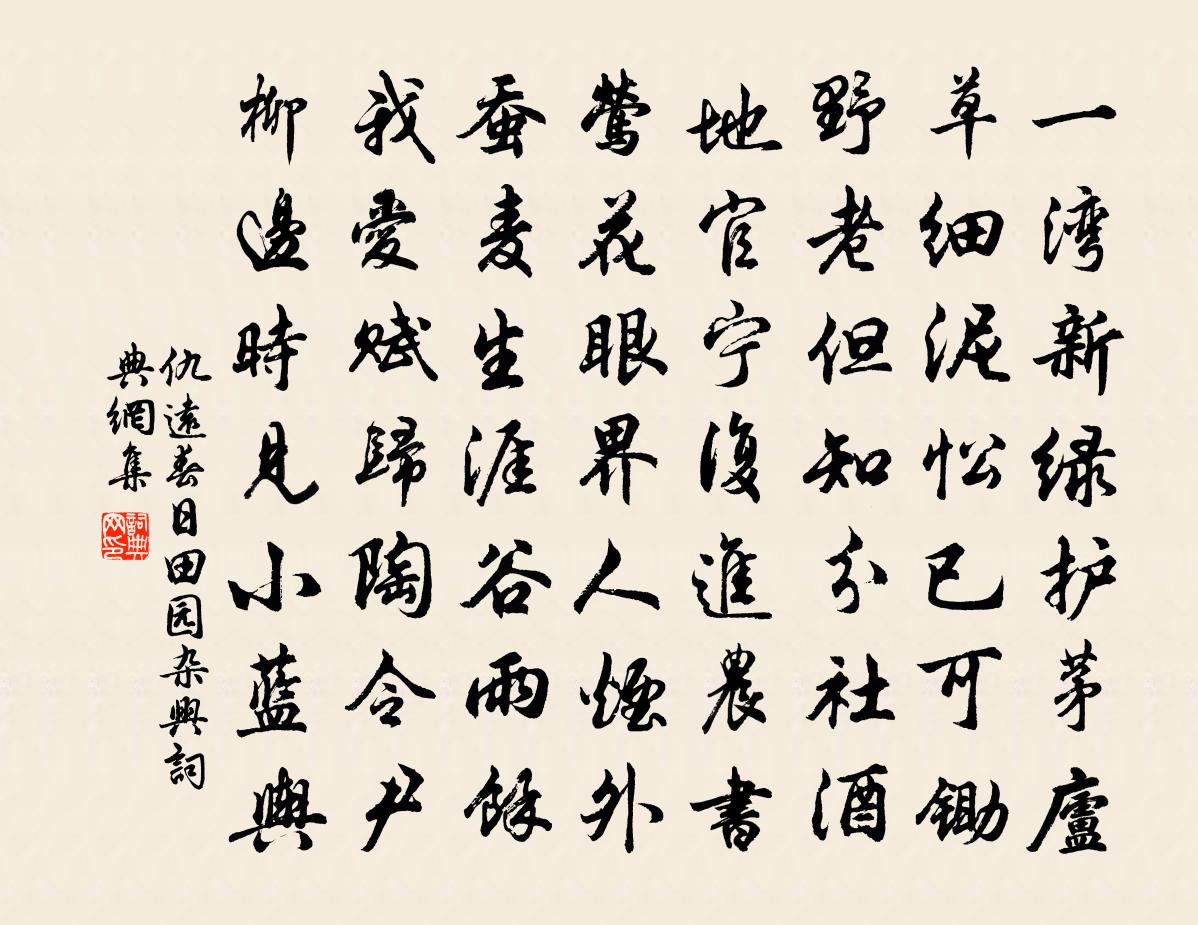 一湾新绿护茅廬
草細泥松已可鋤
野老但知分社酒
地官宁復進農書
鶯花眼界人煙外
蚕麦生涯谷雨餘
我愛賦歸陶令尹
柳邊時見小藍輿
仇遠春日田园杂興詞
典網集
詞典网印